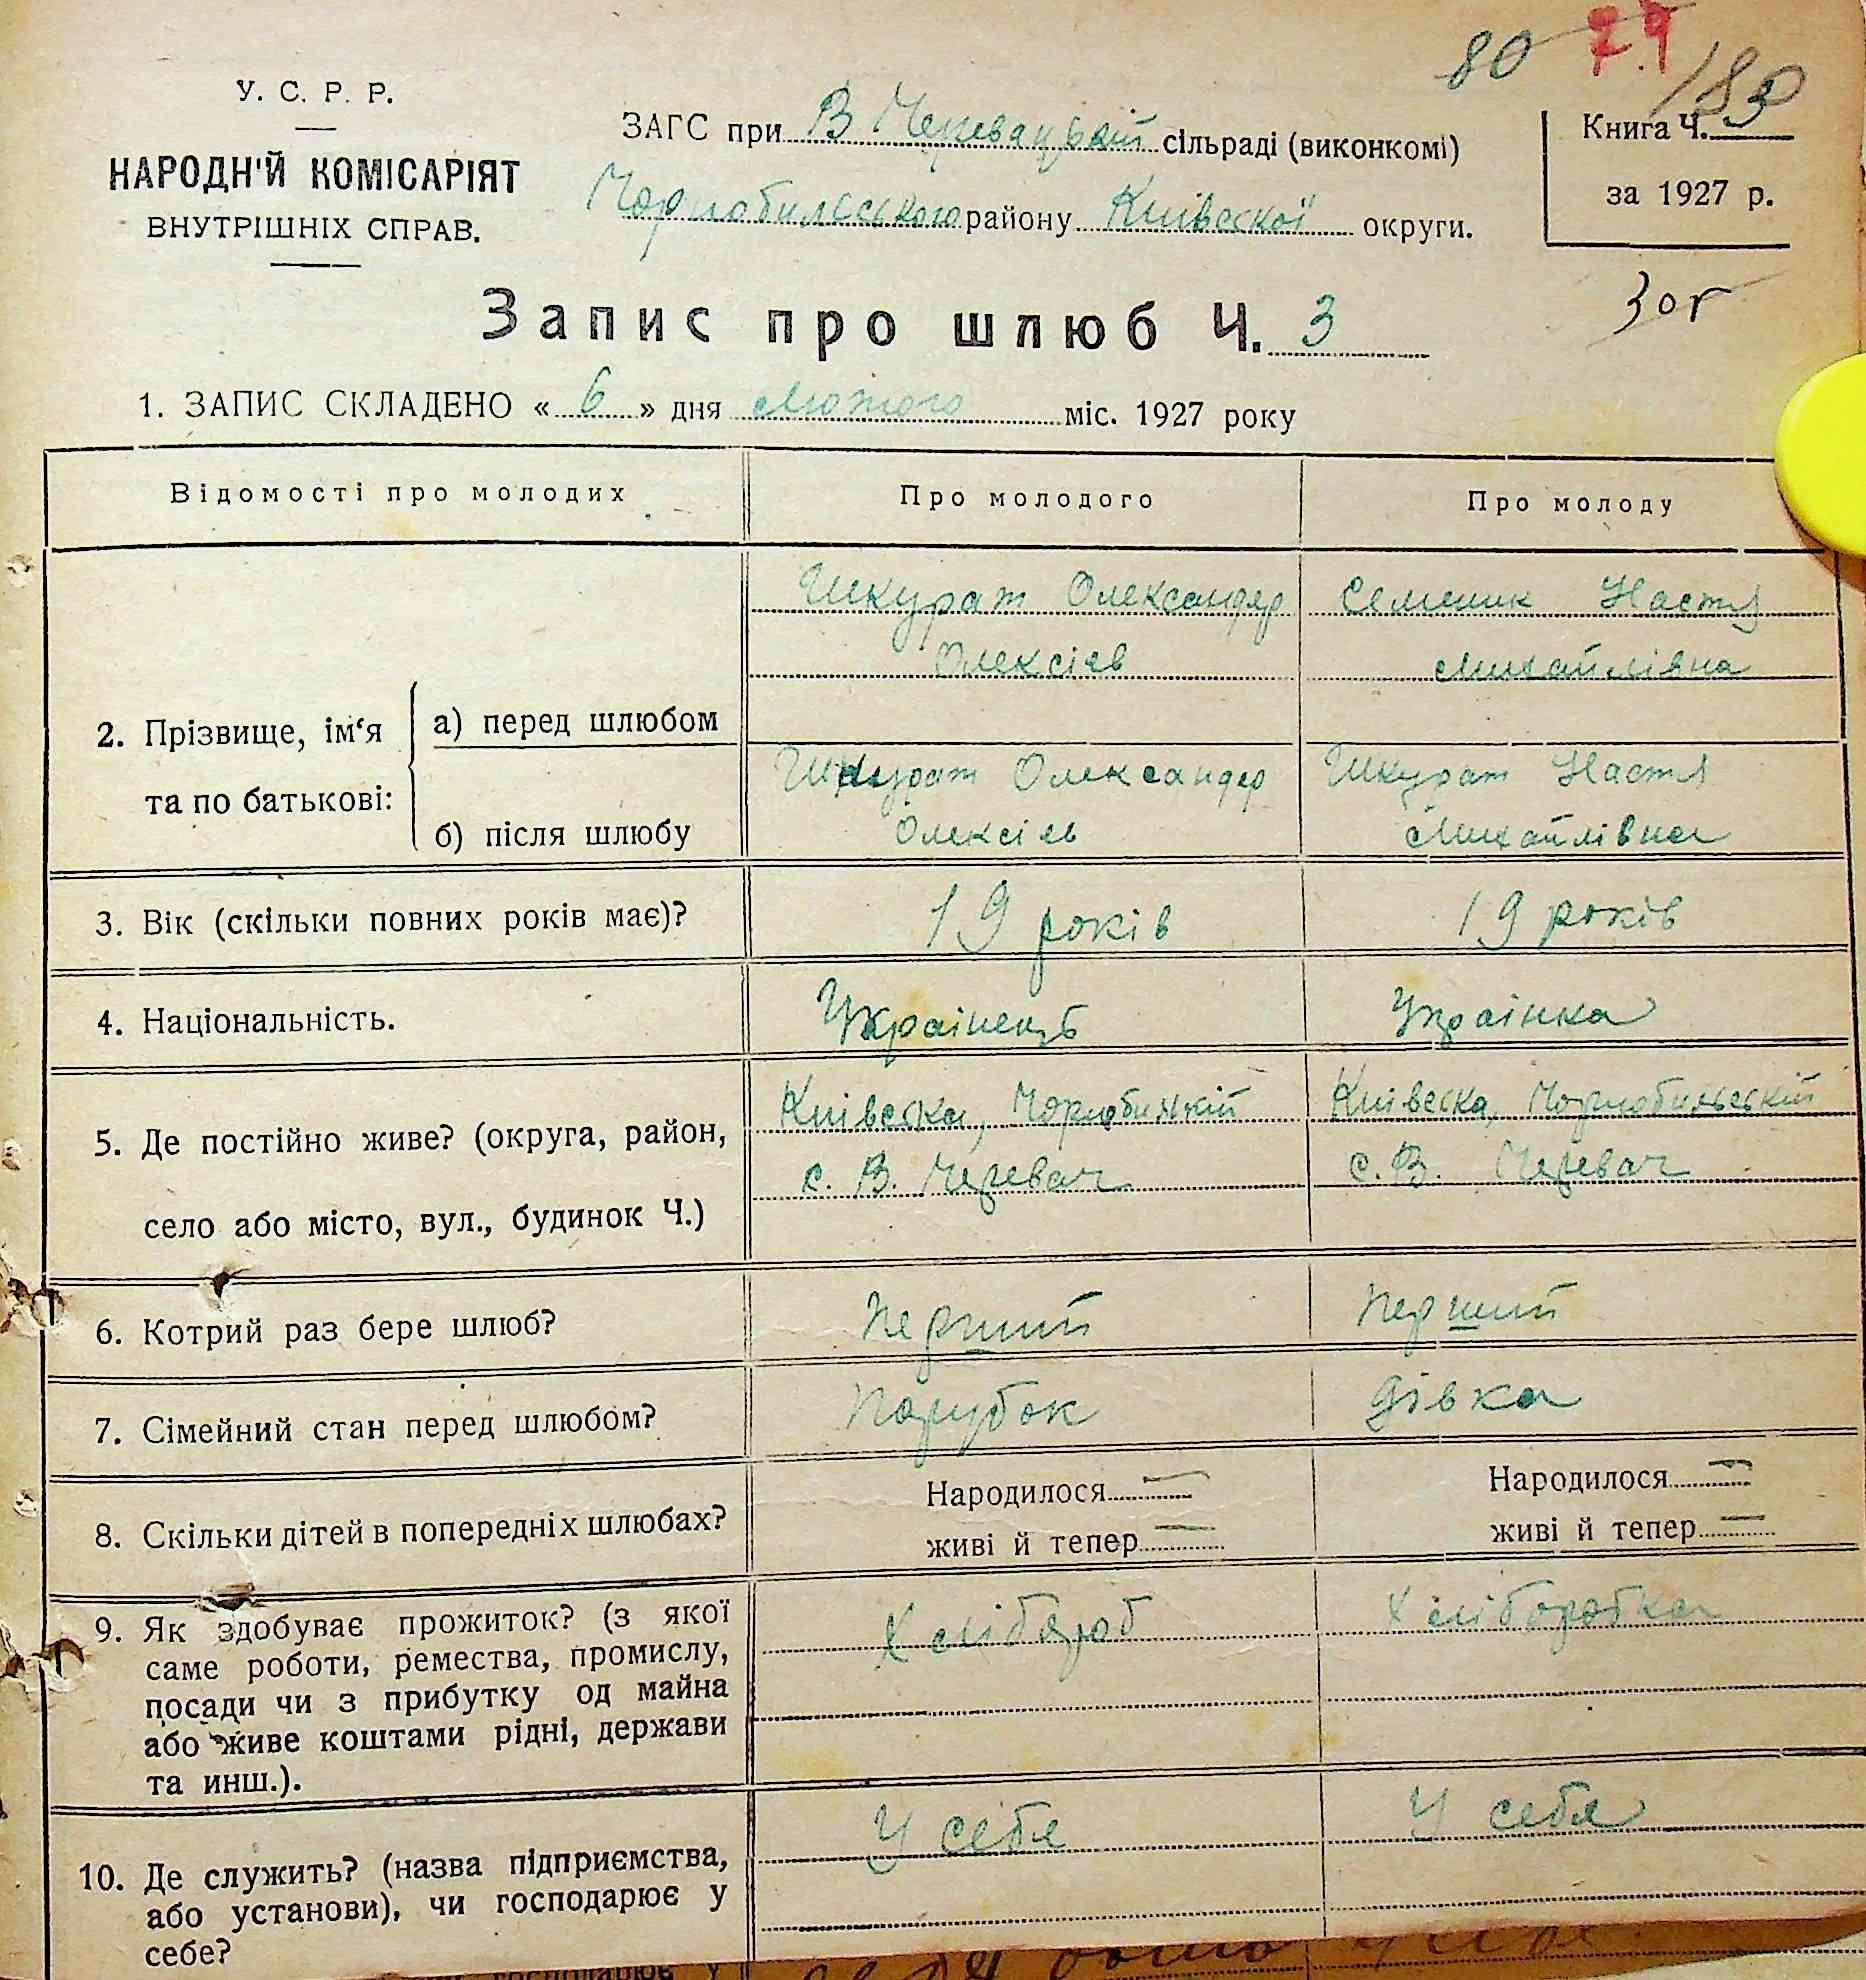 80 24 /80
У. С. Р. Р.
НАРОДН'Й КОМІСАРІЯТ
ВНУТРІШНІХ СПРАВ.
ЗАГС при В Черевацькій сільраді (виконкомі)
Чорнобильського району Київської округи.
Книга Ч. 3
за 1927 р.
Запис про шлюб Ч. 3
1. ЗАПИС СКЛАДЕНО « 6 » дня Лютого міс. 1927 року
Відомості про молодих Про молодого Про молоду
2. Прізвище, ім‘я та по батькові:
а) перед шлюбом
Шкурат Олександер
Олексієв
Семеник Настя
Михайлівна
б) після шлюбу
Шкурат Олександер
Олексієв
Шкурат Настя
Михайлівна
3. Вік (скільки повних років має)? 19 років 19 років
4. Національність. Українець Українка
5. Де постійно живе? (округа, район,
село або місто, вул., будинок Ч.)
Київська, Чорнобильский
с. В. Черевач
Київська, Чорнобильській
с. В. Черевач
6. Котрий раз бере шлюб? Перший Перший
7. Сімейний стан перед шлюбом? Парубок Дівка
8. Скільки дітей в попередніх шлюбах?
Народилося —
живі й тепер —
Народилося —
живі й тепер —
9. Як здобуває прожиток? (з якої
саме роботи, ремества, промислу,
посади чи з прибутку од майна
або живе коштами рідні, держави
та инш.).
Хлібороб Хліборобка
10. Де служить? (назва підприємства,
або установи), чи господарює у
себе?
У себе У себя